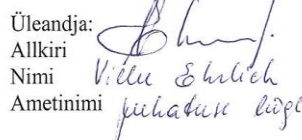 Üleandja:
Allkiri
Nimi Villu Ehrlich
Ametinimi juhatuse liige